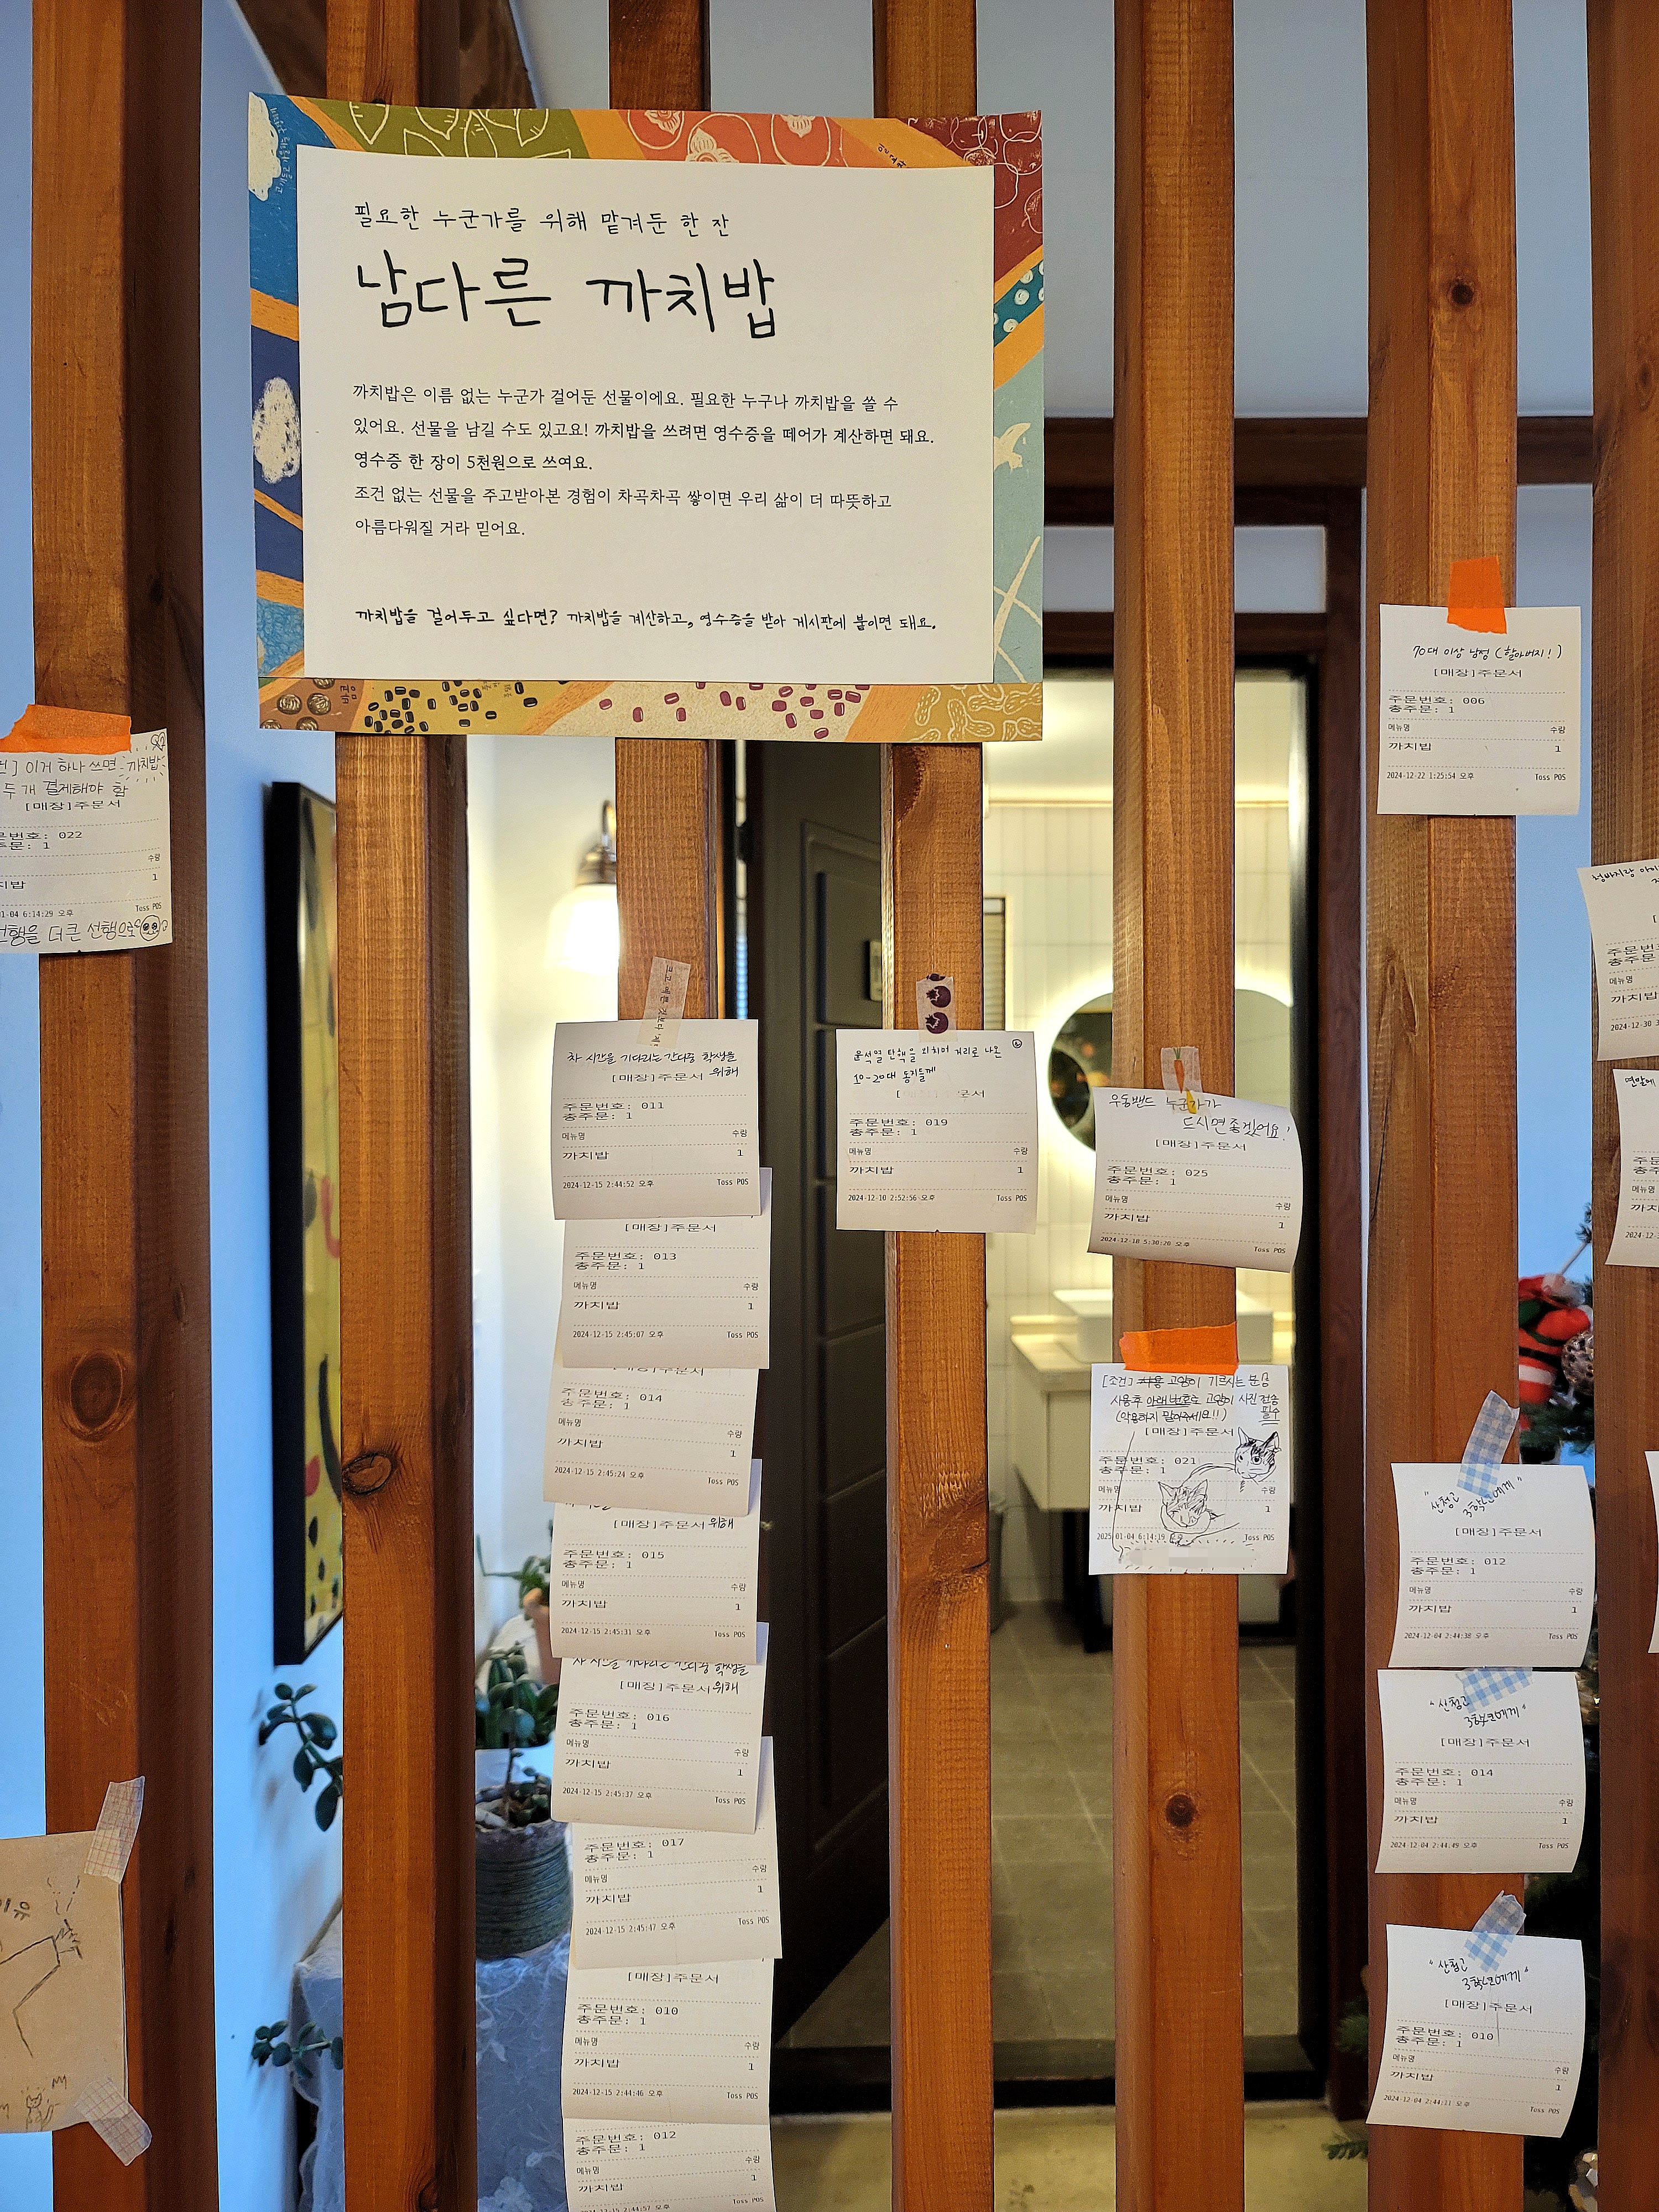 필요한 누군가를 위해 맡겨둔 한 잔
남다른 까치밥
까치밥은 이름 없는 누군가 걸어둔 선물이에요. 필요한 누구나 까치밥을 쓸 수
있어요. 선물을 남길 수도 있고요! 까치밥을 쓰려면 영수증을 떼어가 계산하면 돼요.
영수증 한 장이 5천원으로 쓰여요.
조건 없는 선물을 주고받아본 경험이 차곡차곡 쌓이면 우리 삶이 더 따뜻하고
아름다워질 거라 믿어요.
까치밥을 걸어두고 싶다면? 까치밥을 계산하고, 영수증을 받아 게시판에 붙이면 돼요.
이거 하나 쓰면 까치밥
두 개 결제해야 함
[매장]주문서
문번호: 022
주문: 1
수량
치밥 1
01-04 6:14:29 오후 Toss POS
선행을 더 큰 선행으로
이유
차 시간을 기다리는 간디중 학생들
위해
[매장]주문서
주문번호: 011
총주문: 1
메뉴명 수량
까치밥 1
2024-12-15 2:44:52 오후 Toss POS
[매장]주문서
주문번호: 013
총주문: 1
메뉴명 수량
까치밥 1
2024-12-15 2:45:07 오후 Toss POS
[매장]주문서
주문번호: 014
총주문: 1
메뉴명 수량
까치밥 1
2024-12-15 2:45:24 오후 Toss POS
[매장]주문서 위해
주문번호: 015
총주문: 1
메뉴명 수량
까치밥 1
2024-12-15 2:45:31 오후 Toss POS
차 시간을 기다리는 간디중 학생들
[매장]주문서 위해
주문번호: 016
총주문: 1
메뉴명 수량
까치밥 1
2024-12-15 2:45:37 오후 Toss POS
주문번호: 017
총주문: 1
메뉴명 수량
까치밥 1
2024-12-15 2:45:47 오후 Toss POS
[매장]주문서
주문번호: 010
총주문: 1
메뉴명 수량
까치밥 1
2024-12-15 2:44:46 오후 Toss POS
주문번호: 012
총주문: 1
메뉴명 수량
까치밥 1
2024-12-15 2:44:57 오후 Toss POS
윤석열 탄핵을 외치며 거리로 나온
10-20대 동지들께
[ 문서
주문번호: 019
총주문: 1
메뉴명 수량
까치밥 1
2024-12-10 2:52:56 오후 Toss POS
우동밴드 누군가가
드시면 좋겠어요!
[매장]주문서
주문번호: 025
총주문: 1
메뉴명 수량
까치밥 1
2024-12-18 5:30:20 오후 Toss POS
[조건] 고양이 기르시는 분
사용 후 아래 번호로 고양이 사진 전송
필수
(악용하지 말아주세요!!)
[매장]주문서
주문번호: 021
총주문: 1
메뉴명 수량
까치밥 1
2025-01-04 6:14:19 오후 Toss POS
70대 이상 남성 (할아버지!)
[매장]주문서
주문번호: 006
총주문: 1
메뉴명 수량
까치밥 1
2024-12-22 1:25:54 오후 Toss POS
"산청고
3학년에게"
[매장]주문서
주문번호: 012
총주문: 1
메뉴명 수량
까치밥 1
2024-12-04 2:44:38 오후 Toss POS
"산청고
3학년에게"
[매장]주문서
주문번호: 014
총주문: 1
메뉴명 수량
까치밥 1
2024-12-04 2:44:49 오후 Toss POS
"산청고
3학년에게"
[매장]주문서
주문번호: 010
총주문: 1
메뉴명 수량
까치밥 1
2024-12-04 2:44:11 오후 Toss POS
메뉴명
까치밥
2024-12-30
연말에
메뉴명
까치밥